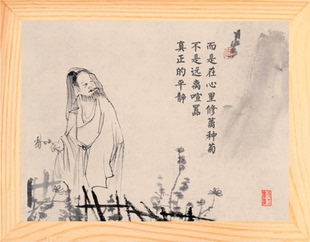 真正的平静
不是远离喧嚣
而是在心里修篱种菊